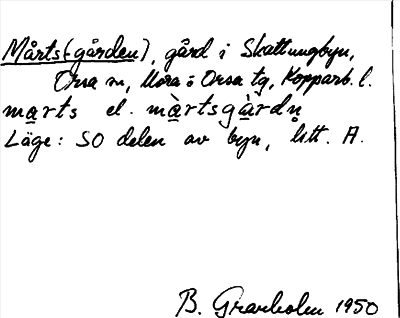 Mårts(-gården), gård i Skattungbyn,
Orsa sn, Mora o Orsa tg, Kopparb. l.
ma̱rts el. mà̱rtsgà̱rdn̥
Läge: SO delen av byn, litt. A.
B. Granholm 1950